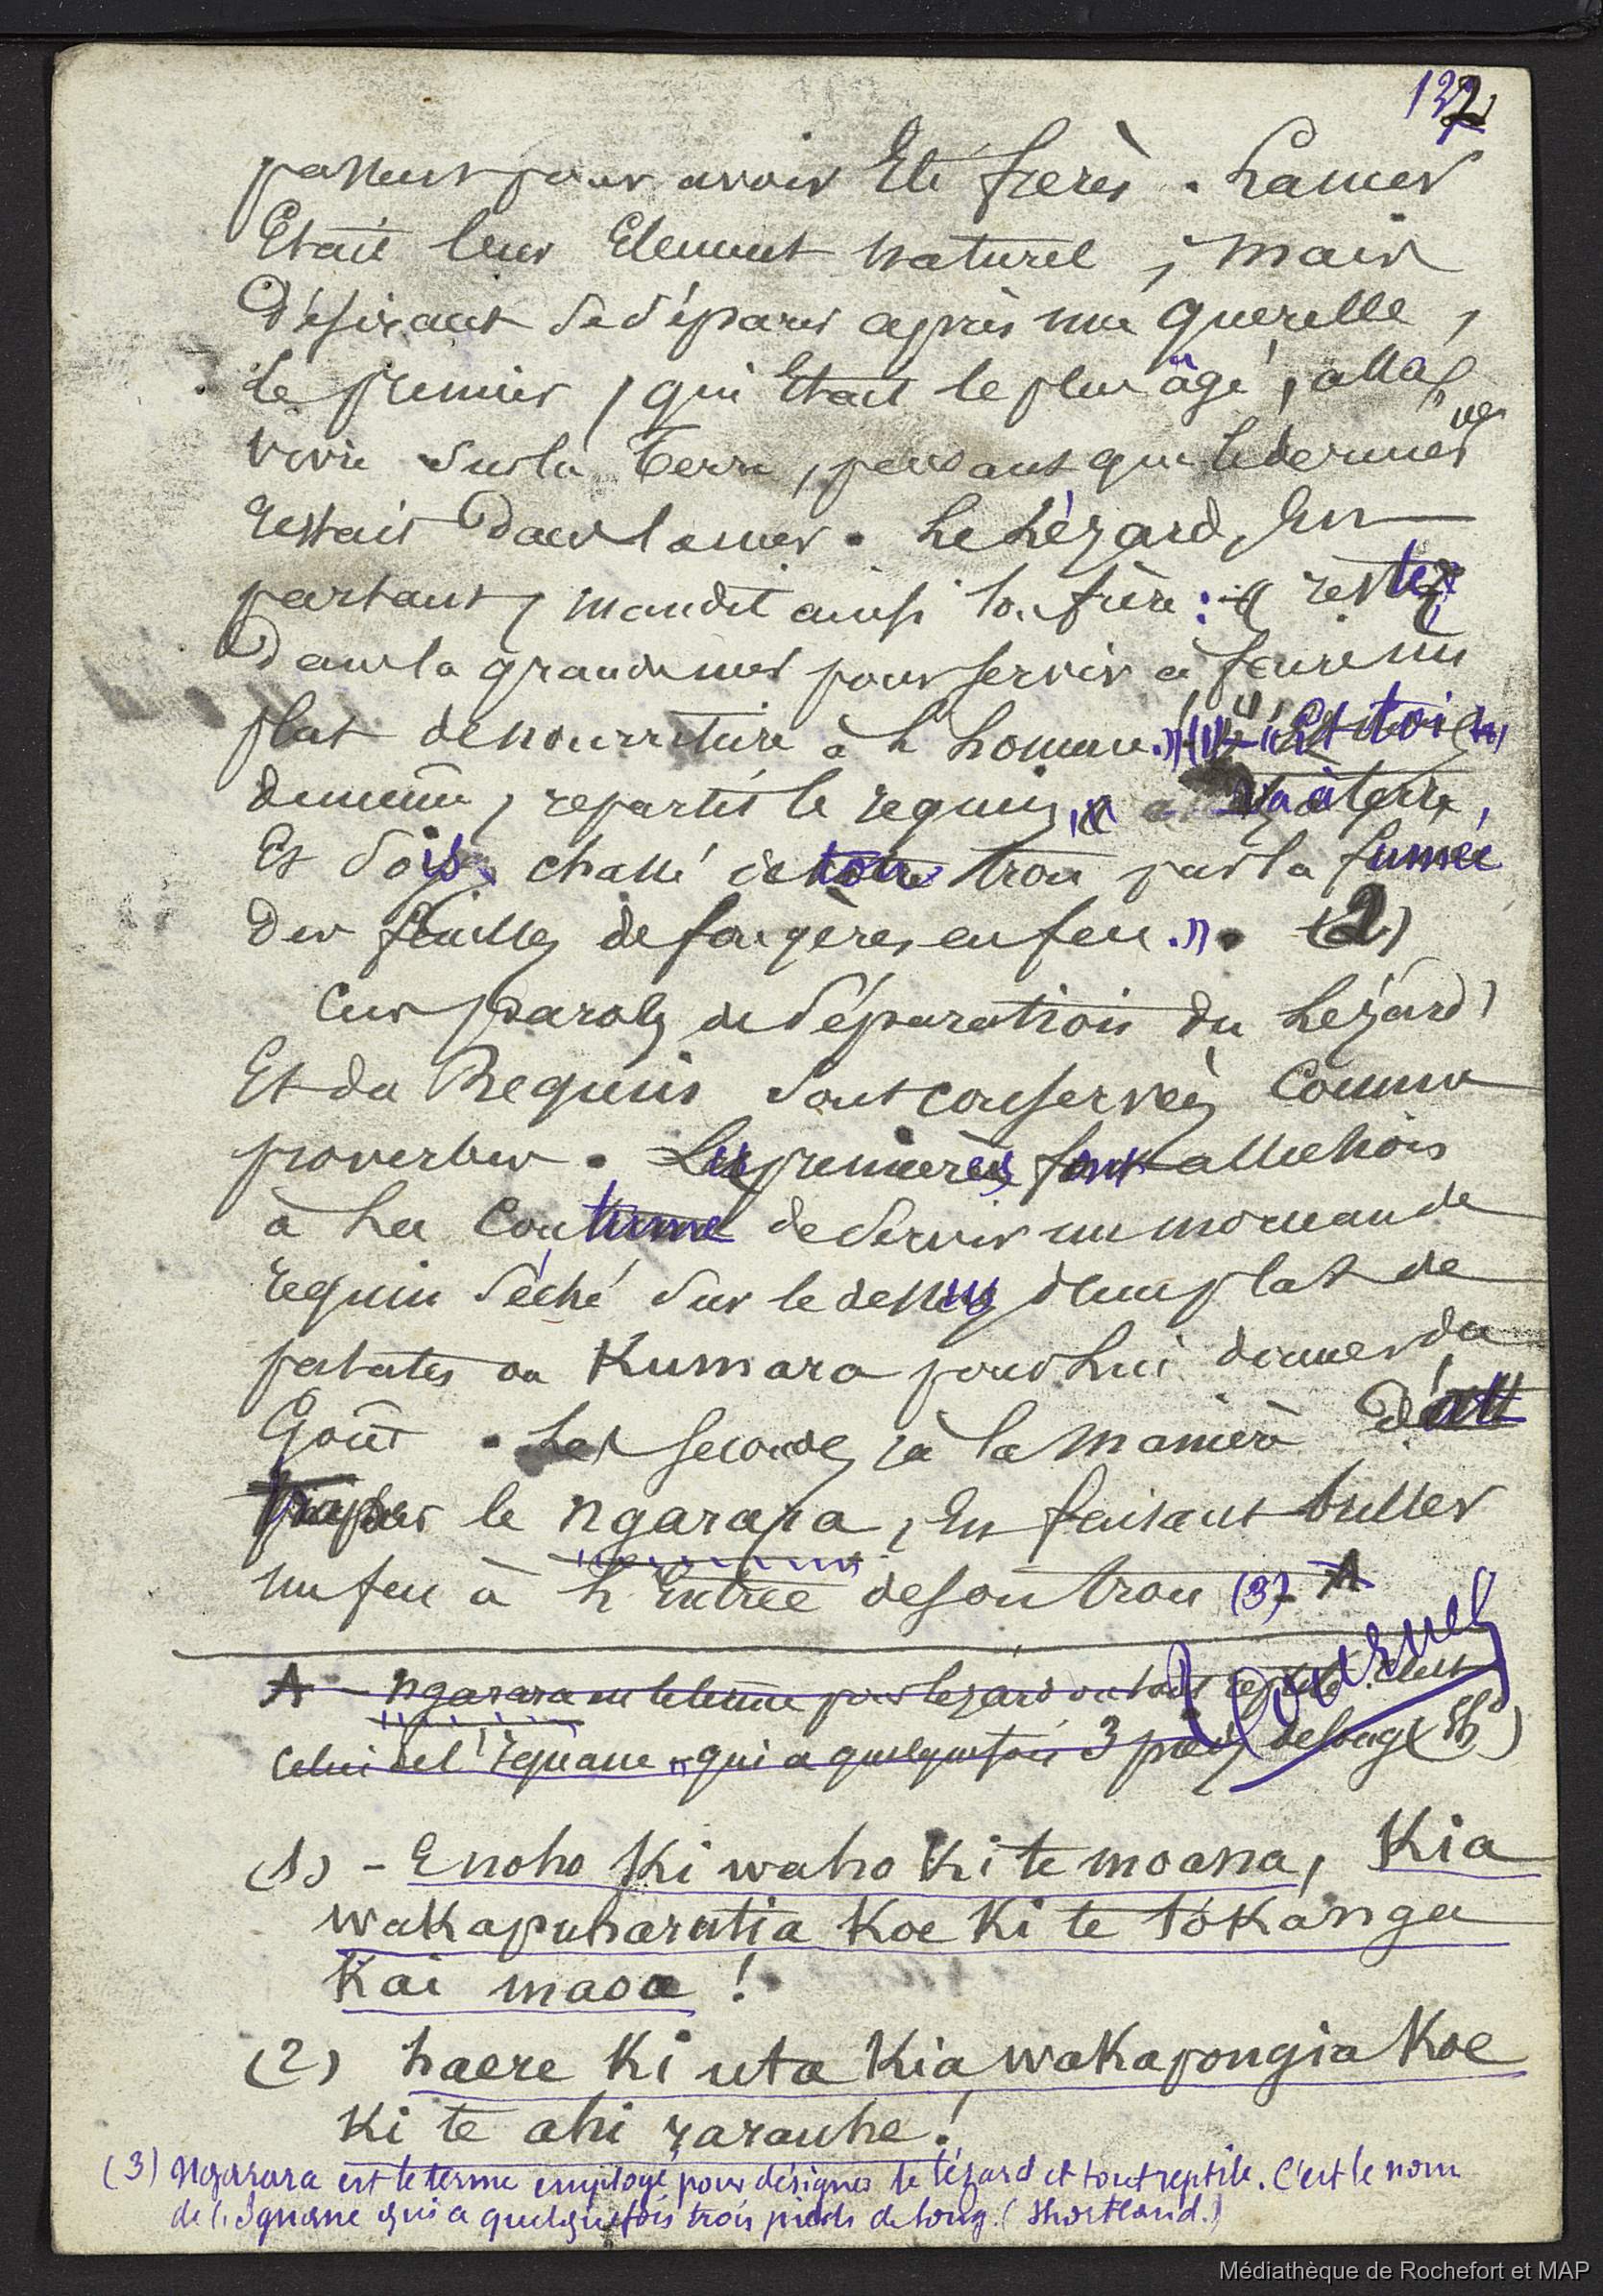 132
passent pour avoir Eté frères. La mer
Etait leur Element naturel, mais
Désirant se séparer après une querelle,
le premier, qui Etait le plus âgé, alla
vivre sur la Terre, pendant que le dernier
restait dans la mer. Le Lézard, En
partant, maudit ainsi son frère : « restez
Dans la grande mer pour servir à faire un
plat de nourriture à l'homme. » (1) « Et toi
de même, repartit le requin, va à terre,
Et sois chassé de ton trou par la fumée
Des feuilles de fougères en feu. » (2)
Ces paroles de séparation du Lézard
Et du Requin sont conservées Comme
proverbes. Les premières font allusion
à La Coutume de servir un morceau de
requin séché sur le dessus d'un plat de
patates ou Kumara pour Lui donner du
Goût. Les secondes, à la manière d'att
raper le ngarara, En faisant brûler
un feu à l'Entrée de son trou (3) A
A - ngarara est le terme pour lezard ou tout reptile. C'est
celui de l'Iguane qui a quelquefois 3 pieds de long (Sh.)
Tournez
(1) - E noho Ki waho Ki te moana, Kia
wakapuharutia Koe Ki te tókanga
Kai maoa !
(2) haere Ki uta Kia wakapongia Koe
Ki te ahi rarauhe !
(3) Ngarara est le terme employé pour désigner le lézard et tout reptile. C'est le nom
de l'Iguane qui a quelquefois trois pieds de long. (Shortland.)
Médiathèque de Rochefort et MAP